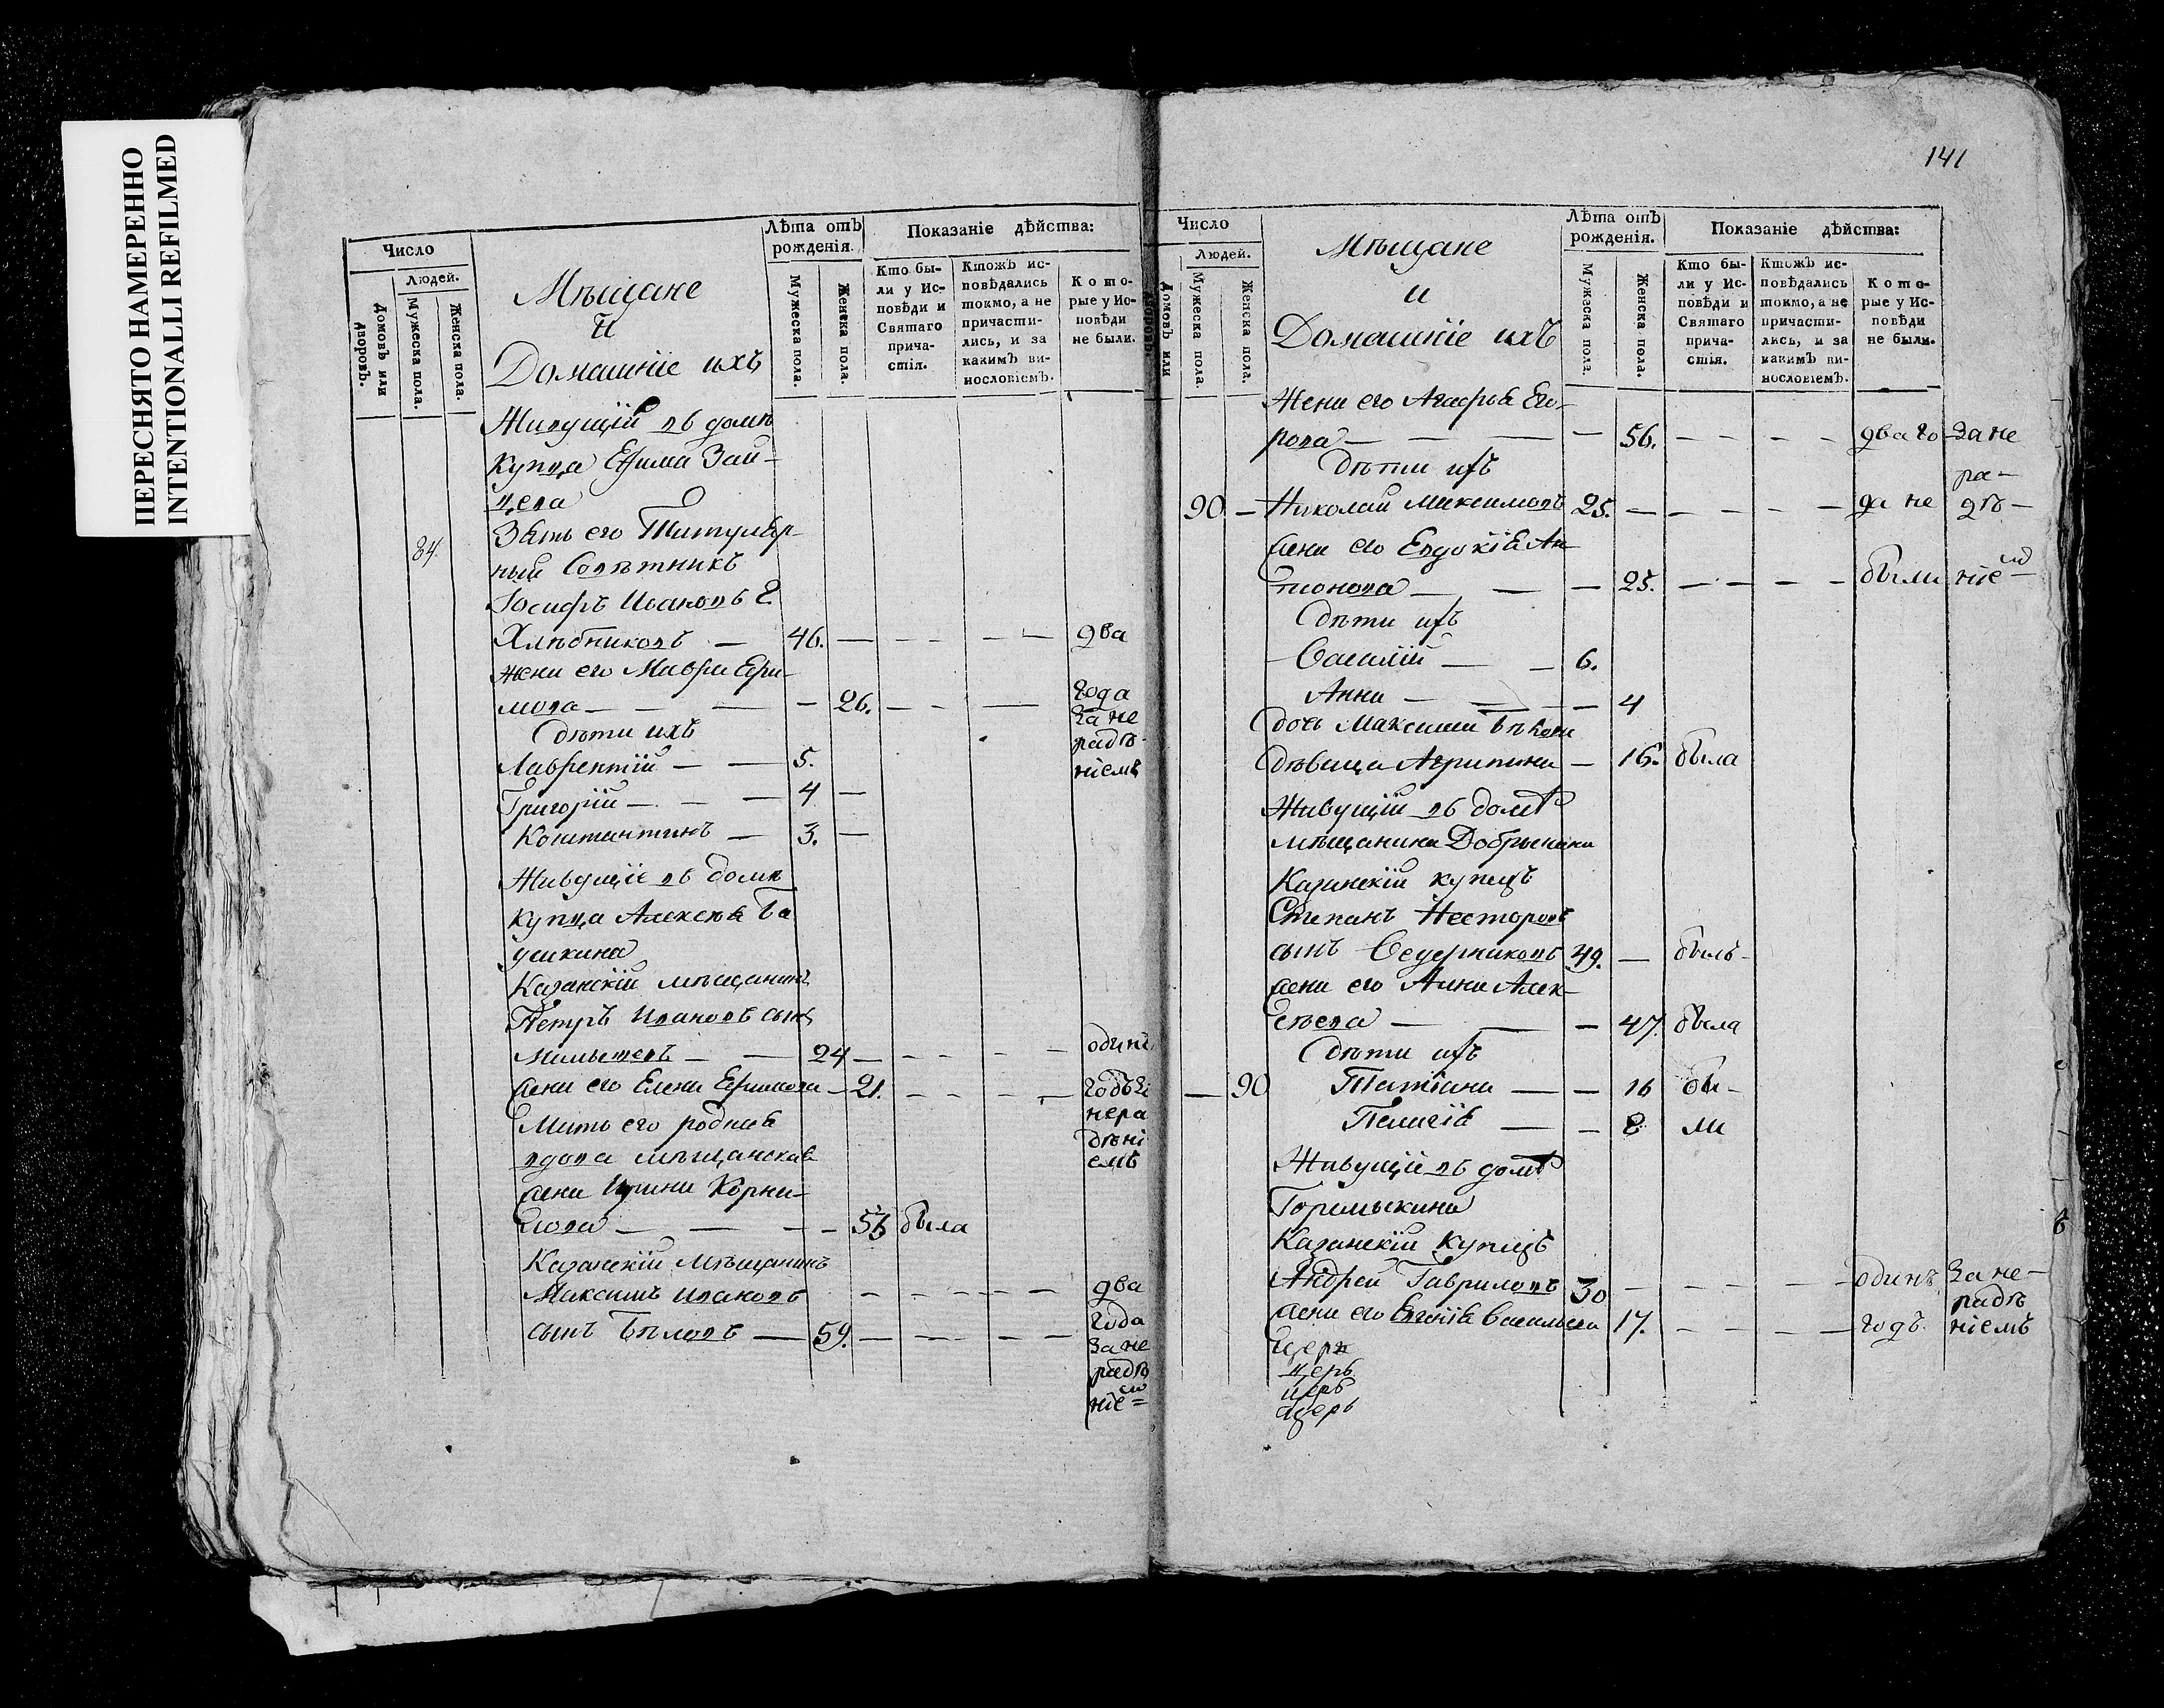 ПЕРЕСНЯТО НАМЕРЕННО
INTENTIONALLI REFILMED
Число
Людей.
Домовъ или дворовъ.
Мужеска пола.
Женска пола.
Мѣщане
и
Домашніе ихъ
Лѣта отъ
рожденія.
Мужеска пола.
Женска пола.
Показаніе дѣйства:
Кто бы-
ли у Ис-
повѣди и
Святаго
прича-
стія.
Ктожъ ис-
повѣдались
токмо, а не
причасти-
лись, и за
какимъ ви-
нословіемъ.
Кото-
рые у Ис-
повѣди
не были.
Живущій въ домѣ
купца Ефима Зай-
цева
84. Зять его Титуляр-
ный Совѣтникъ
Іосифъ Ивановъ
Хлѣбниковъ — 46. — два
жена его Мавра Ефи-
мова — 26. — года
за не
радѣ-
ніемъ
Дѣти ихъ
Лаврентій — 5.
Григорій — 4 —
Константинъ — 3. —
Живущіе въ домѣ
купца Алексѣя Ба
ушкина
Казанскій мѣщанинъ
Петръ Ивановъ сынъ
24 — одинъ
жена его Елена Ефимова — 21. — годъ за
нера
дѣні
емъ
Мать его родная
вдова мѣщанская
жена Ирина Корни-
лова — 53 была
Казанскій Мѣщанинъ
Максимъ Ивановъ — два
сынъ Бѣловъ — 59. — года
за не
радѣ
ніе=мъ
141
Число
Людей.
Домовъ или дворовъ.
Мужеска пола.
Женска пола.
Мѣщане
и
Домашніе ихъ
Лѣта отъ
рожденія.
Мужеска пола.
Женска пола.
Показаніе дѣйства:
Кто бы-
ли у Ис-
повѣди и
Святаго
прича-
стія.
Ктожъ ис-
повѣдались
токмо, а не
причасти-
лись, и за
какимъ ви-
нословіемъ.
Кото-
рые у Ис-
повѣди
не были.
Жена его Агафья Его-
рова — 56. — два го- За не
Дѣти ихъ ра-
90. — Николай Максимовъ 25. — да не дѣ-
жена его Евдокія Ан
тонова — 25. — были ніемъ
Дѣти ихъ
Василій — 6.
Анна — 4
Дочь Максима Бѣлова
Дѣвица Агрипина — 16. была
Живущій въ домѣ
мѣщанина Добрынина
Казанскій купецъ
Степанъ Несторовъ
сынъ 49. — былъ
жена его Анна Алек-
сѣева — 47. была
Дѣти ихъ
— 90 Татіана — 16 бы-
Пелагія — 8 ли
Живущіе въ домѣ
Горемыкина
Казанскій Купецъ
Андрей Гавриловъ 30 — одинъ За не-
радѣ
жена его Васильева 17. — годъ. ніемъ